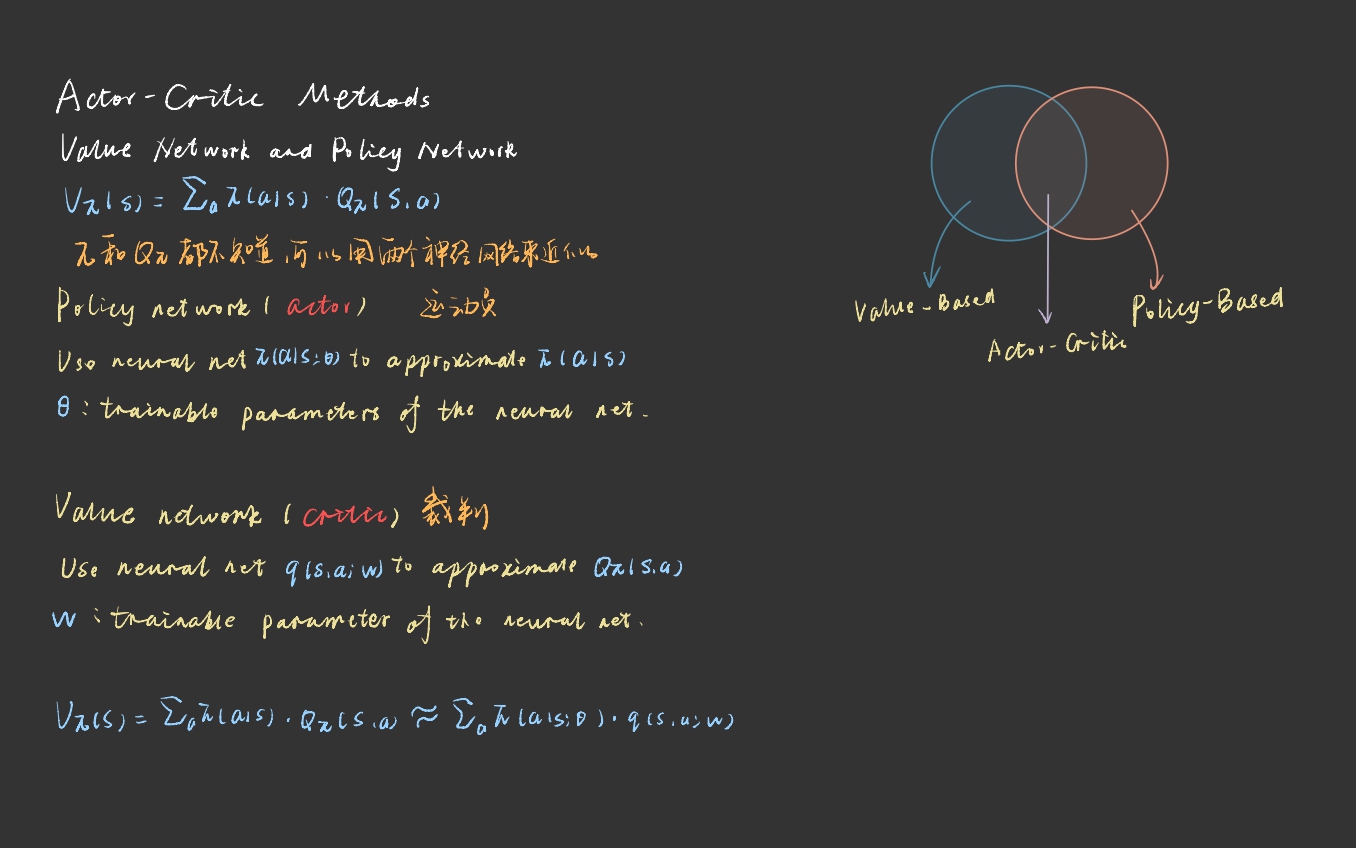 Actor-Critic Methods
Value Network and Policy Network
Vπ(s) = Σₐ π(a|s) · Qπ(s,a)
π和Qπ都不知道,可以用两个神经网络来近似
Policy network (actor) 运动员
Use neural net π(a|s;θ) to approximate π(a|s)
θ : trainable parameters of the neural net.
Value network (critic) 裁判
Use neural net q(s,a;w) to approximate Qπ(s,a)
w : trainable parameter of the neural net.
Vπ(s) = Σₐ π(a|s) · Qπ(s,a) ≈ Σₐ π(a|s;θ) · q(s,a;w)
Value-Based
Actor-Critic
Policy-Based